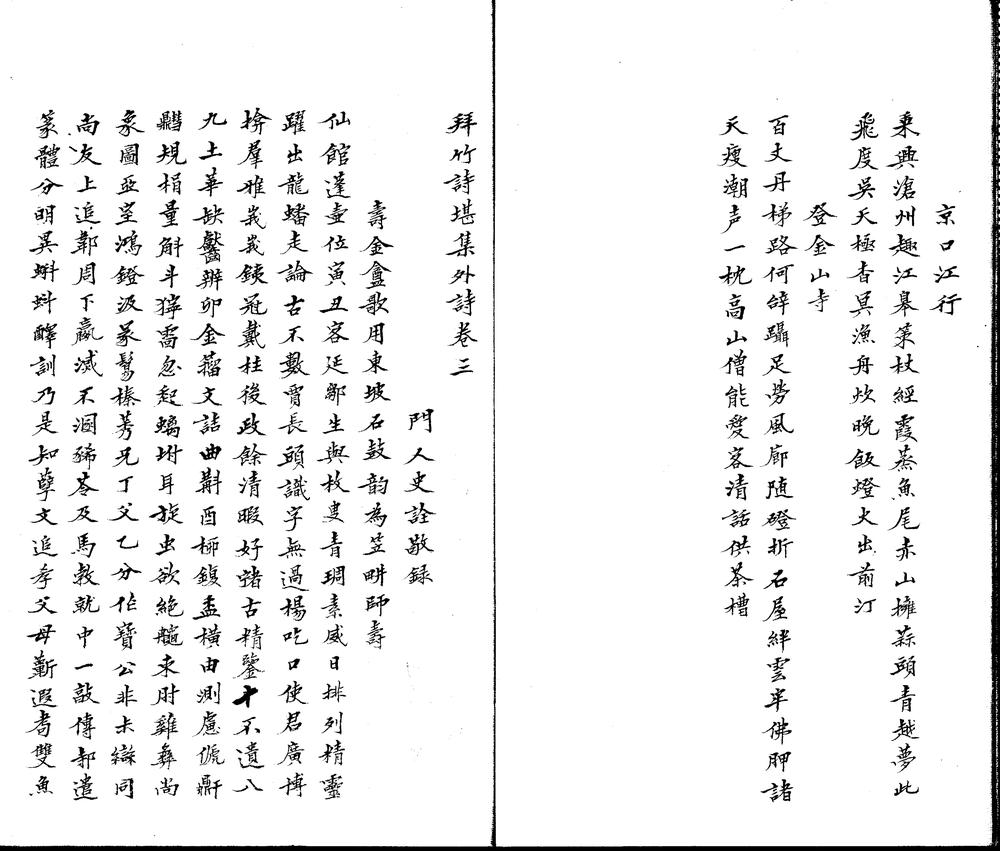 京口江行
乘興滄州趣江皋策杖經霞蒸魚尾赤山擁蒜頭青越夢此
飛度吳天極杳冥漁舟炊晚飯燈火出前汀
登金山寺
百丈丹梯路何辞躡足勞風廊随磴折石屋絆雲牢佛胛諸
天瘦潮声一枕高山僧能愛客清話供茶槽
拜竹詩堪集外詩卷三
門人史詮敬録
壽金盦歌用東坡石鼓韵為笠畊師壽
仙館蓬壺位寅丑客延鄒生與枚叟青琱素威日排列精靈
躍出龍蟠走論古不數賈長頭識字無過楊吃口使君廣博
揜羣雅峩峩鐵冠戴柱後政餘清暇好蓄古精鑒十不遺八
九土華缺齾辨卯金籀文詰曲斠酉桺鍑盂橫由測慮俿鼏
規榍量斛斗犖雷忽起螭坿耳旋虫欲絶 束肘雞彝尚
象圖亞室鴻鐙汲 榛莠兄丁父乙分作寶公非未 同
尚友上追鄣周下嬴滅不涸豨苓及馬敦就中一敲傳郝遣
篆體分明異蝌蚪醳訓乃是知孽文追孝父母蘄遐耇雙魚